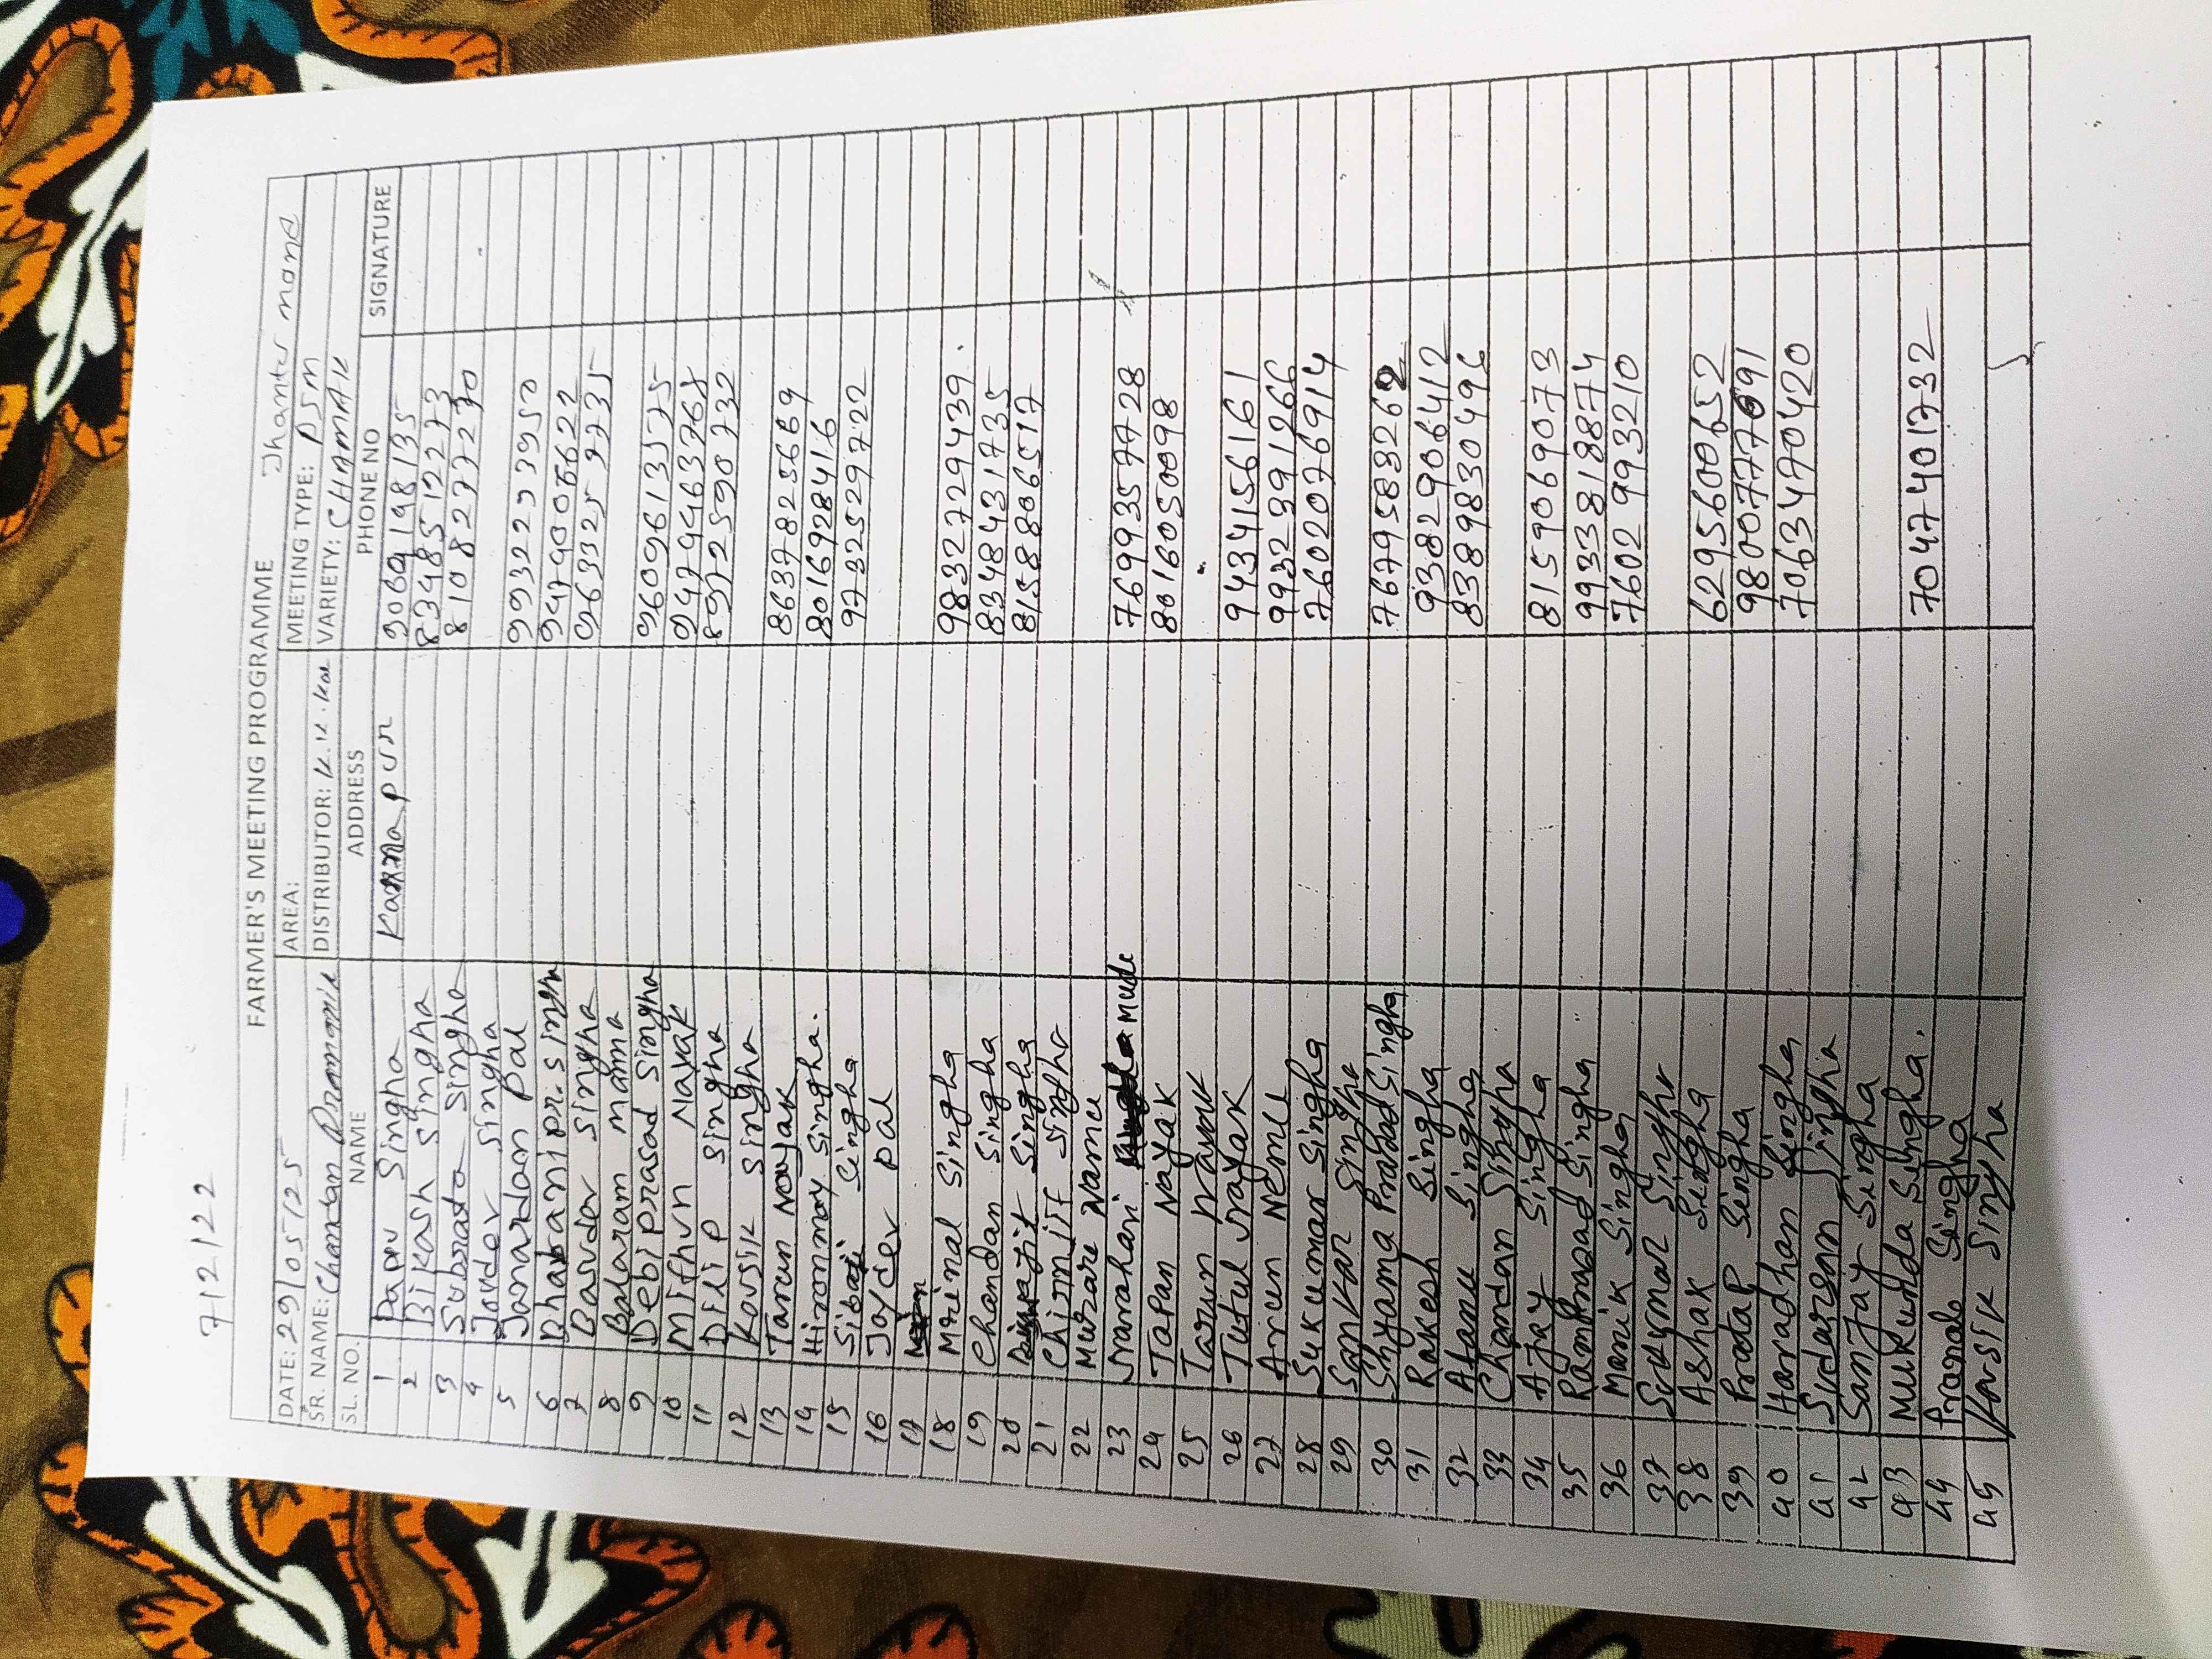 7/2/22
FARMER'S MEETING PROGRAMME Jhanter mana
DATE: 29/05/25 AREA: MEETING TYPE: PSM
SR. NAME: Chandan Pramanik DISTRIBUTOR: K.K. VARIETY: CHAMAK
SL. NO. NAME ADDRESS PHONE NO SIGNATURE
1 Papu Singha Karnapur 9060198135
2 Bikash Singha 8348512273
3 Subrata Singha 8108277270
4 Joydev Singha
5 Janardan Pal 9932239950
6 Bhabani pr. Singha 9479005622
7 Basudev Singha 9633259735
8 Balaram manna
9 Debiprasad Singha 9609613575
10 Mithun Nayak 9479463768
11 Dilip Singha 8972590732
12 Kousik Singha
13 Tarun Nayak 8637825689
14 Hironmoy Singha. 8016928416
15 Sibaji Singha 9732529722
16 Joydev Pal
17
18 Mrinal Singha 9832729439.
19 Chandan Singha 8348431735
20 Singha 8158806517
21 Chironjit Singha
22 Murare Namu
23 Narahari Mude 7699357728
24 Tapan Nayak 8016050098
25 Tarun Nayak
26 Tutul Nayak 9434156161
27 Arun Nemu 9932391266
28 Sukumar Singha 7602076914
29 Sankar Singha
30 Shyama Prosad Singha 7679583262
31 Rakesh Singha 9382906412
32 Atanu Singha 8389830496
33 Chandan Singha
34 Ajay Singha 8159069073
35 Ramprosad Singha 9933818874
36 Manik Singha 7602993210
37 Sukumar Singha
38 Ashok Singha 6295600652
39 Protap Singha 9800777691
40 Haradhan Singha 7063470420
41 Sudarson Singha
42 Sanjay Singha
43 Mukunda Singha. 7047401732
44 Pranab Singha
45 Kousik Singha